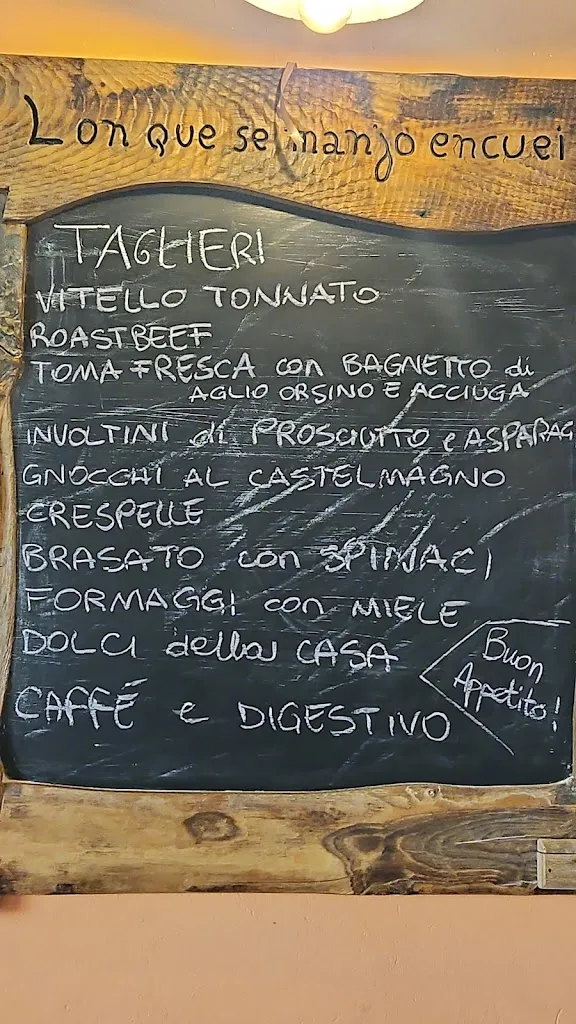 Lon que se manjo encuei
TAGLIERI
VITELLO TONNATO
ROASTBEEF
TOMA FRESCA con BAGNETTO di
AGLIO ORSINO E ACCIUGA
INVOLTINI di PROSCIUTTO e ASPARAG
GNOCCHI AL CASTELMAGNO
CRESPELLE
BRASATO con SPINACI
FORMAGGI con MIELE
DOLCI della CASA
CAFFÉ e DIGESTIVO
Buon
Appetito!